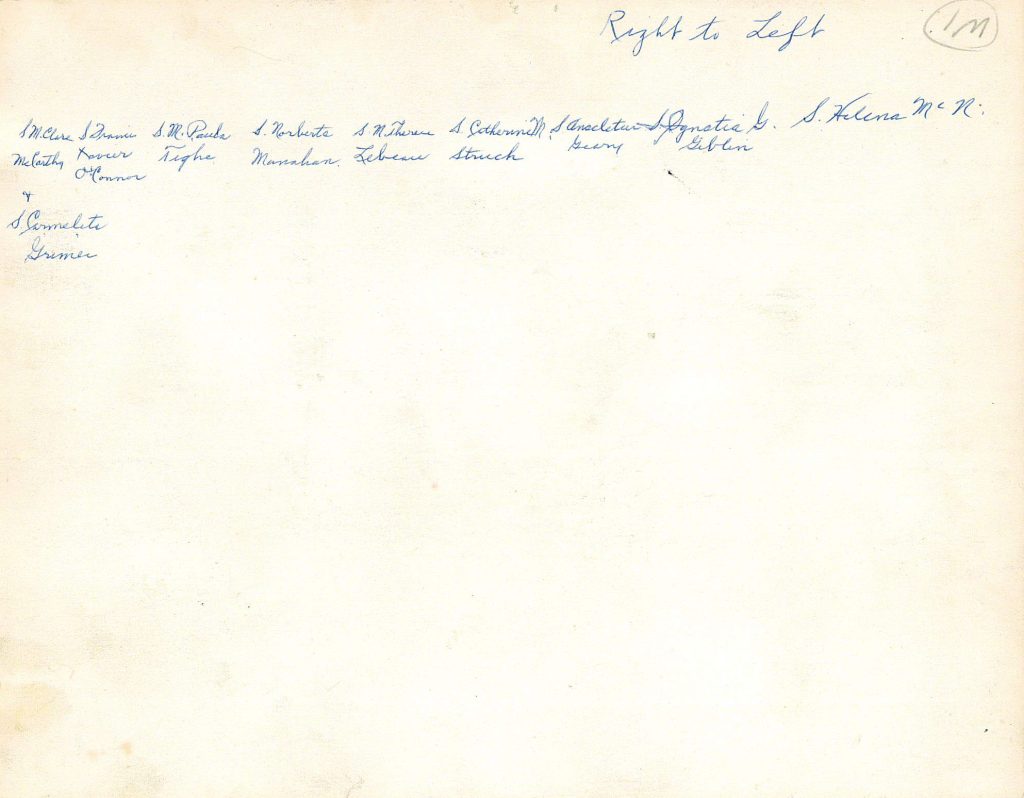 Right to Left
S M. Clare S Francis S. M. Paula S. Norberta S. M. Therese S. Catherine M. S Anacletus S. Ignatia G. S. Helena Mc N.
McCarthy Xavier Tighe Manahan. Lebeau Struch Geary Giblin
O'Connor
+
S. Carmelita
Grimes